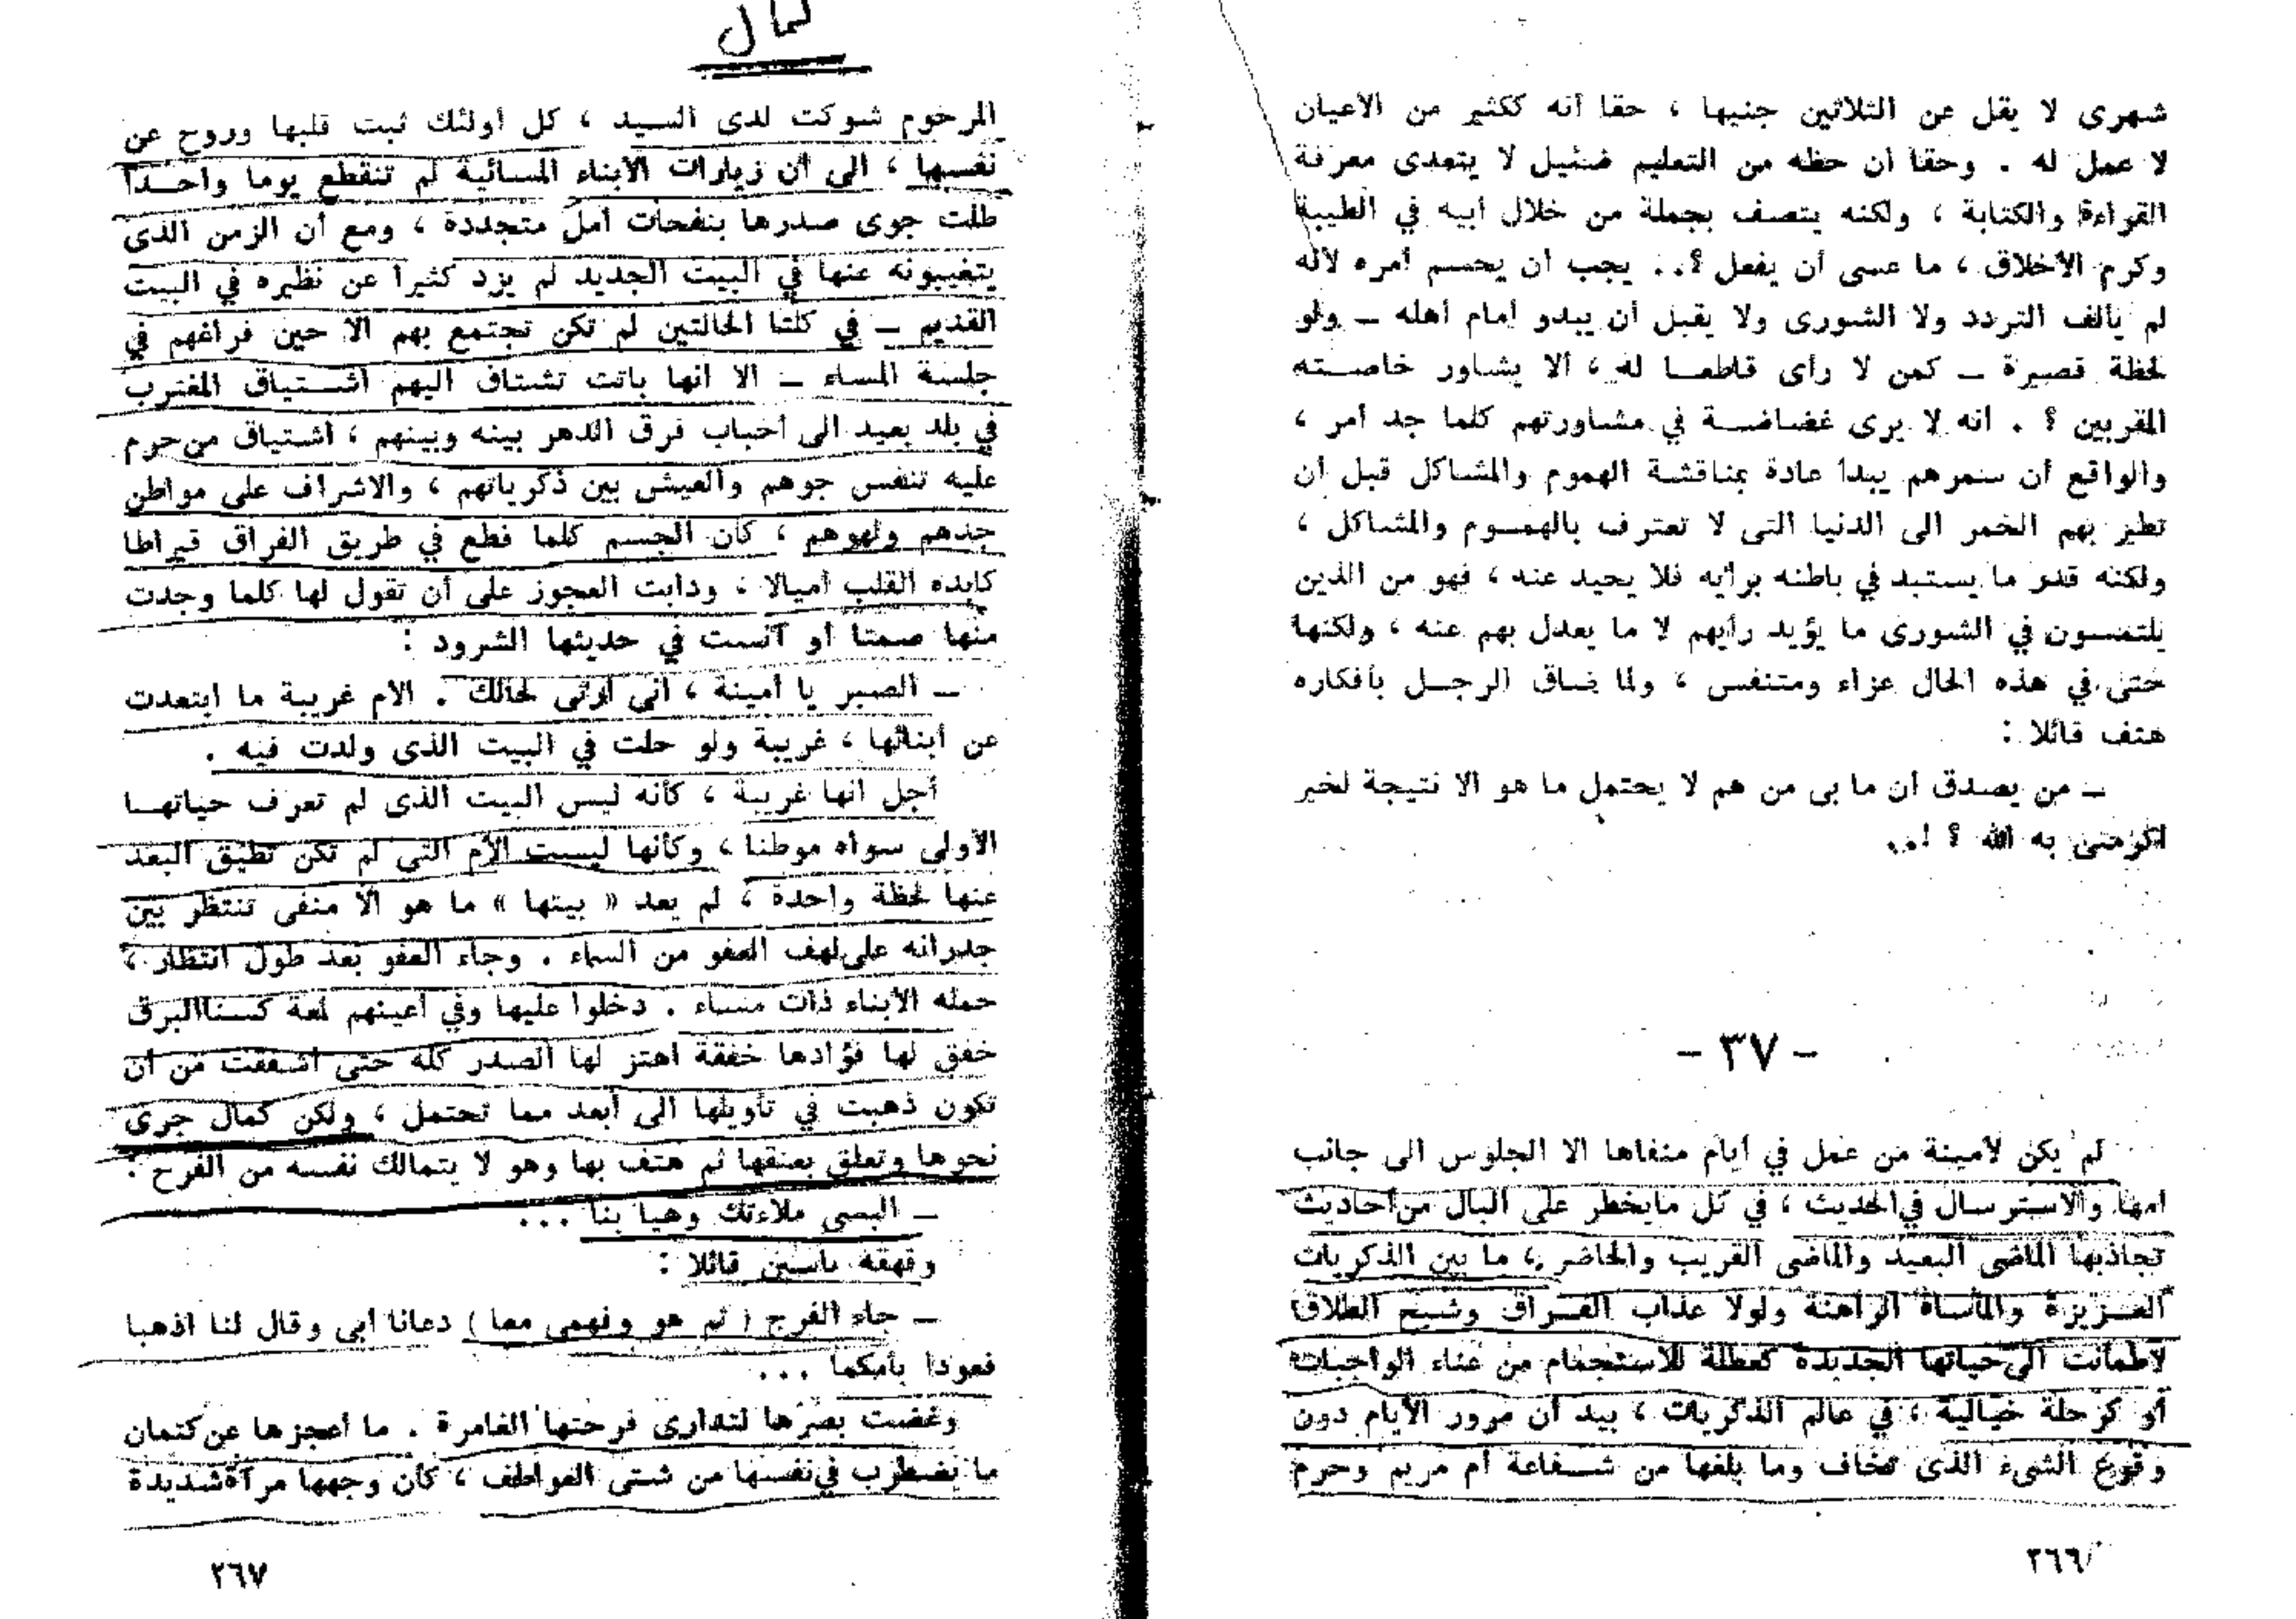 شهرى لا يقل عن الثلاثين جنيها ، حقا أنه ككثير من الأعيان
لا عمل له . وحقا أن حظه من التعليم ضئيل لا يتعدى معرفة
القراءة والكتابة ، ولكنه يتصف بجملة من خلال أبيه في الطيبة
وكرم الأخلاق ، ما عسى أن يفعل ؟.. يجب أن يحسم أمره لأنه
لم يألف التردد ولا الشورى ولا يقبل أن يبدو أمام أهله ــ ولو
لحظة قصيرة ــ كمن لا رأى قاطعــا له ، ألا يشاور خاصــته
المقربين ؟ . أنه لا يرى غضاضــة في مشاورتهم كلما جد أمر ،
والواقع أن سمرهم يبدأ عادة بمناقشة الهموم والمشاكل قبل أن
تطير بهم الخمر الى الدنيا التى لا تعترف بالهمــوم والمشاكل ،
ولكنه قدر ما يستبد في باطنه برأيه فلا يحيد عنه ، فهو من الذين
يلتمسون في الشورى ما يؤيد رأيهم لا ما يعدل بهم عنه ، ولكنها
حتى في هذه الحال عزاء ومتنفس ، ولما ضاق الرجــل بأفكاره
هتف قائلا :
ــ من يصدق أن ما بى من هم لا يحتمل ما هو الا نتيجة لخير
أكرمنى به الله ؟ !..
ــ ٣٧ ــ
لم يكن لأمينة من عمل في أيام منفاها الا الجلوس الى جانب
أمها والاسترسال في الحديث ، في كل ما يخطر على البال من أحاديث
تجاذبها الماضى البعيد والماضى القريب والحاضر ، ما بين الذكريات
العــزيزة والمأساة الراهنة ولولا عذاب الفــراق وشبح الطلاق
لاطمأنت الى حياتها الجديدة كعطلة للاستجمام من عناء الواجبات
أو كرحلة خيالية ، في عالم الذكريات ، بيد أن مرور الأيام دون
وقوع الشىء الذى تخاف وما بلغها من شــفاعة أم مريم وحرم
٢٦٦
كمال
المرحوم شوكت لدى الســيد ، كل أولئك ثبت قلبها وروح عن
نفسها ، الى أن زيارات الأبناء المسائية لم تنقطع يوما واحــدا
طلت جوى صدرها بنفحات أمل متجددة ، ومع أن الزمن الذى
يتغيبونه عنها في البيت الجديد لم يزد كثيرا عن نظيره في البيت
القديم ــ في كلتا الحالتين لم تكن تجتمع بهم الا حين فراغهم في
جلسة المساء ــ الا أنها باتت تشتاق اليهم اشــتياق المغترب
في بلد بعيد الى أحباب فرق الدهر بينه وبينهم ، اشتياق من حرم
عليه تنفس جوهم والعيش بين ذكرياتهم ، والاشراف على مواطن
جدهم ولهوهم ، كأن الجسم كلما قطع في طريق الفراق قيراطا
كابده القلب أميالا ، ودأبت العجوز على أن تقول لها كلما وجدت
منها صمتا أو آنست في حديثها الشرود :
ــ الصبر يا أمينة ، انى أرثى لحالك . الأم غريبة ما ابتعدت
عن أبنائها ، غريبة ولو حلت في البيت الذى ولدت فيه .
أجل انها غريبة ، كأنه ليس البيت الذى لم تعرف حياتهــا
الأولى سواه موطنا ، وكأنها ليست الأم التى لم تكن تطيق البعد
عنها لحظة واحدة ، لم يعد « بيتها » ما هو الا منفى تنتظر بين
جدرانه على لهف العفو من السماء . وجاء العفو بعد طول انتظار ،
حمله الأبناء ذات مساء . دخلوا عليها وفي أعينهم لمعة كسنا البرق
خفق لها فؤادها خفقة اهتز لها الصدر كله حتى أشفقت من أن
تكون ذهبت في تأويلها الى أبعد مما تحتمل ، ولكن كمال جرى
نحوها وتعلق بعنقها ثم هتف بها وهو لا يتمالك نفسه من الفرح :
ــ البسى ملاءتك وهيا بنا ...
وقهقه ياسين قائلا :
ــ جاء الفرج ( ثم هو وفهمى معا ) دعانا أبى وقال لنا اذهبا
فعودا بأمكما ...
وغضت بصرها لتدارى فرحتها الغامرة . ما أعجزها عن كتمان
ما يضطرب في نفسها من شتى العواطف ، كأن وجهها مرآة شديدة
٢٦٧